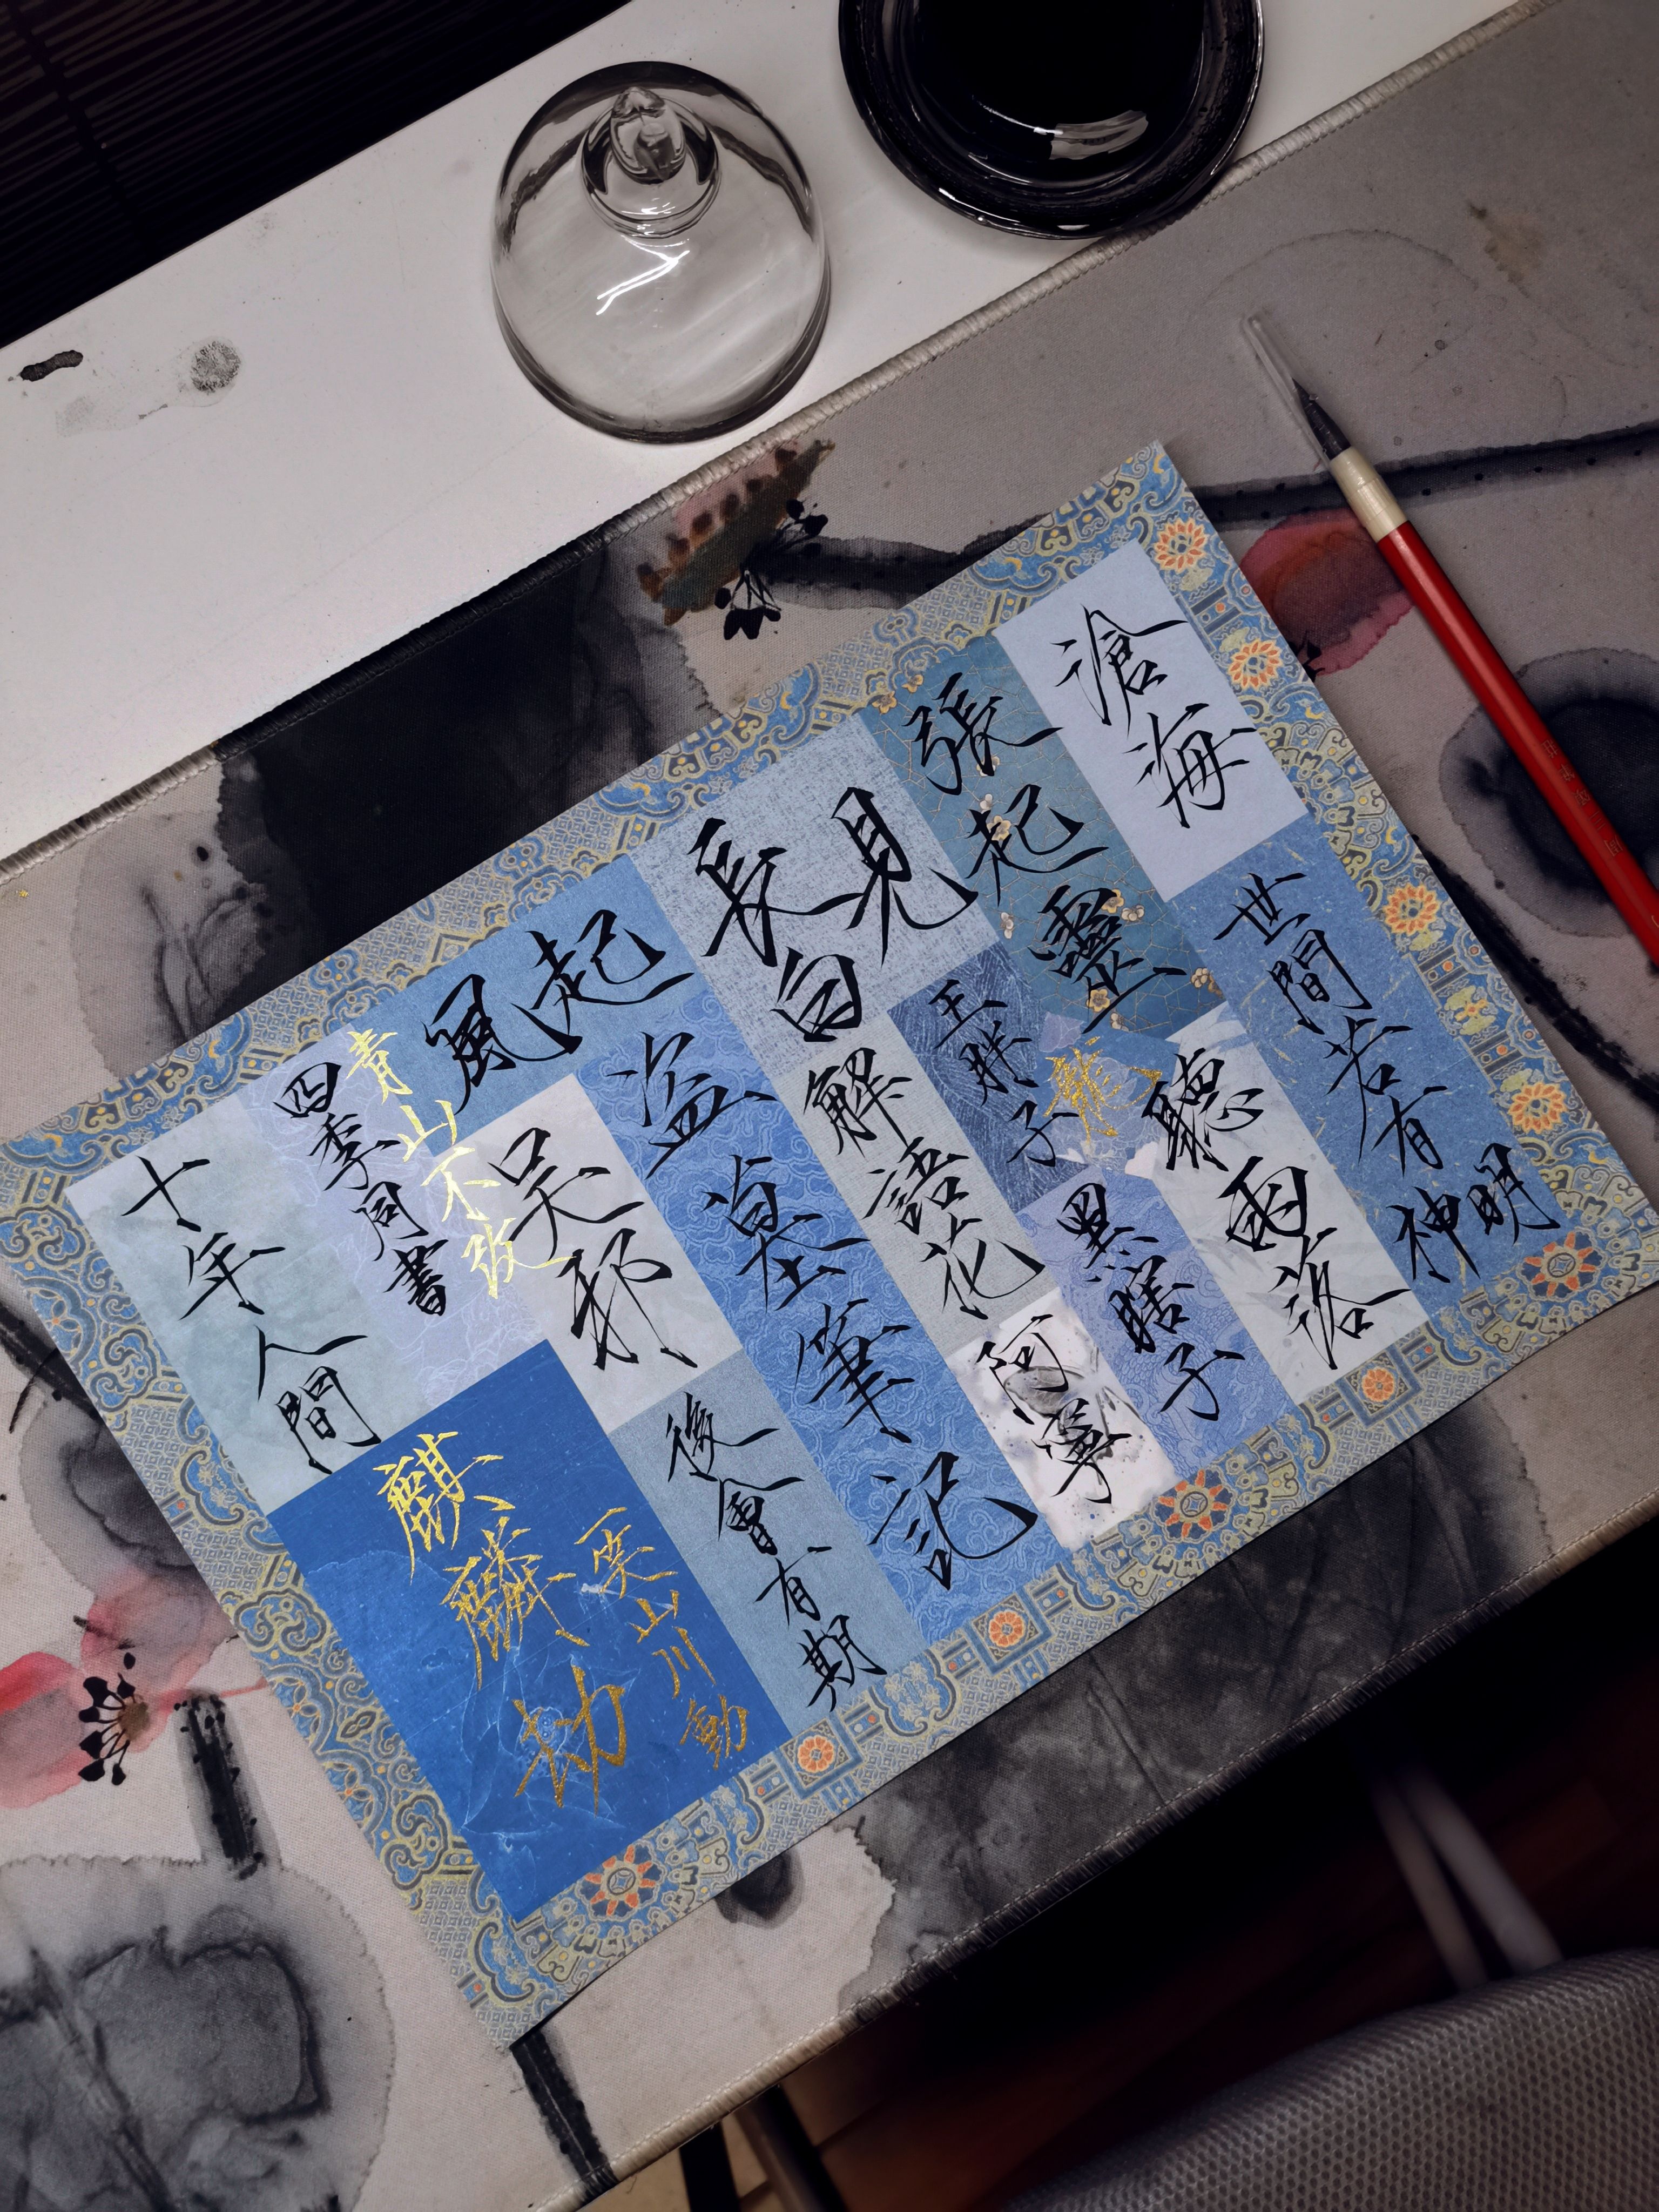 滄海
世間若有神明
張起靈
聽雨落
見長白
王胖子
黑瞎子
解語花
阿寧
盜墓筆記
起風
吳邪
後會有期
青山不改
四季同書
一笑山川動
麒麟劫
十年人間